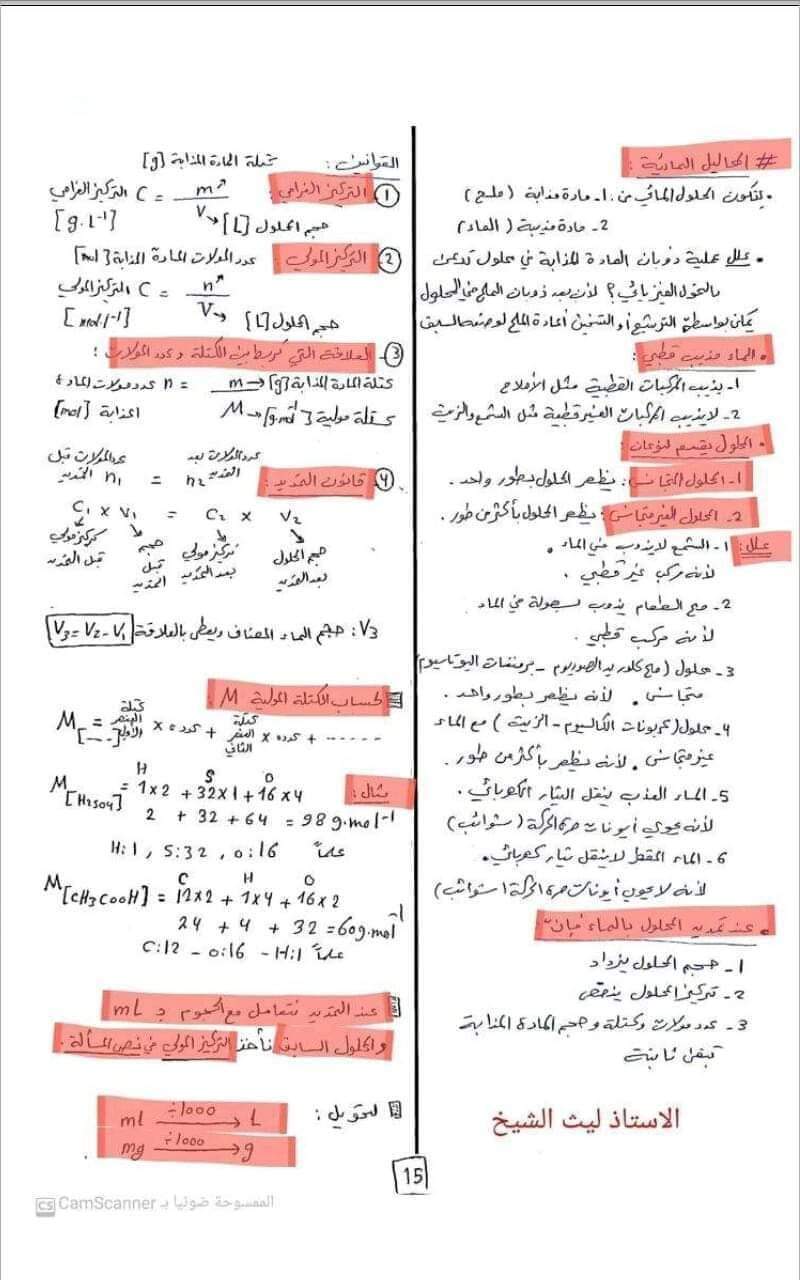 # المحاليل المائية :
• يتكون المحلول المائي من : 1- مادة مذابة ( ملح )
2- مادة مذيبة ( الماء )
• علل عملية ذوبان المادة المذابة في محلول تدعى
بالتحول الفيزيائي؟ لأن بعد ذوبان الملح في المحلول
يمكن بواسطة الترشيح أو التسخين إعادة الملح لوضعه السابق
• الماء مذيب قطبي :
1- يذيب المركبات القطبية مثل الأملاح
2- لا يذيب المركبات الغير قطبية مثل الشمع والزيت
• المحلول يقسم لنوعان :
1- المحلول المتجانس : يظهر المحلول بطور واحد .
2- المحلول الغير متجانس : يظهر المحلول بأكثر من طور .
علل : 1- الشمع لا يذوب في الماء .
لأنه مركب غير قطبي .
2- ملح الطعام يذوب بسهولة في الماء
لأنه مركب قطبي .
3- محلول ( ملح كلوريد الصوديوم - برمنغنات البوتاسيوم
متجانس . لأنه يظهر بطور واحد .
4- محلول ( كربونات الكالسيوم - الزيت ) مع الماء
غير متجانس . لأنه يظهر بأكثر من طور .
5- الماء العذب ينقل التيار الكهربائي .
لأنه يحوي أيونات حرة الحركة ( شوائب )
6- الماء المقطر لا ينقل تيار كهربائي .
لأنه لا يحوي أيونات حرة الحركة ( شوائب )
• عند تمديد المحلول بالماء فإن :
1- حجم المحلول يزداد
2- تركيز المحلول ينقص
3- عدد مولات وكتلة وحجم المادة المذابة
تبقى ثابتة
الاستاذ ليث الشيخ
القوانين : كتلة المادة المذابة [g]
1 التركيز الغرامي : التركيز الغرامي C = m / V
[g.L-1] حجم المحلول [L]
2 التركيز المولي : عدد المولات المادة المذابة [mol]
التركيز المولي C = n / V
[mol.l-1] حجم المحلول [L]
3- العلاقة التي تربط بين الكتلة وعدد المولات :
عدد مولات المادة n = m → [g] كتلة المادة المذابة
المذابة [mol] M → [g.mol-1] كتلة مولية
4 قانون التمديد : عدد المولات بعد التمديد n2 = n1 عدد المولات قبل التمديد
C1 × V1 = C2 × V2
تركيز مولي قبل التمديد حجم قبل التمديد تركيز مولي بعد التمديد حجم المحلول بعد التمديد
V3 : حجم الماء المضاف ويعطى بالعلاقة V3 = V2 - V1
لحساب الكتلة المولية M :
M[---] = كتلة العنصر الأول × عدده + كتلة العنصر الثاني × عدده + ------
مثال :
H S O
M[H2SO4] = 1×2 + 32×1 + 16×4
2 + 32 + 64 = 98 g.mol-1
علماً H:1 , S:32 , O:16
C H O
M[CH3COOH] = 12×2 + 1×4 + 16×2
24 + 4 + 32 = 60g.mol-1
علماً C:12 - O:16 - H:1
عند التمديد نتعامل مع الحجوم بـ mL
والمحلول السابق نأخذ التركيز المولي في نص المسألة .
لتحويل :
ml ÷1000 → L
mg ÷1000 → g
15
CS CamScanner الممسوحة ضوئيا بـ